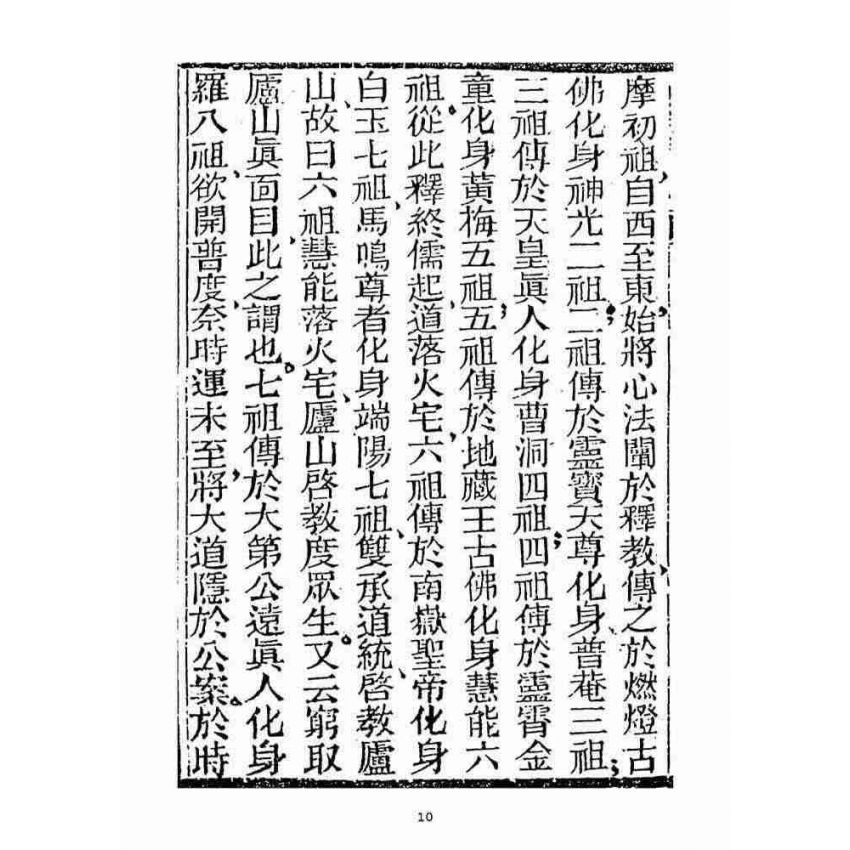 摩初祖、自西至東、始將心法闡於釋教、傳之於燃燈古
佛化身神光二祖；二祖傳於靈寶天尊化身普菴三祖；
三祖傳於天皇眞人化身曹洞四祖；四祖傳於靈霄金
童化身黃梅五祖；五祖傳於地藏王古佛化身慧能六
祖。從此釋終儒起、道落火宅、六祖傳於南嶽聖帝化身
白玉七祖、馬鳴尊者化身端陽七祖、雙承道統、啓教廬
山、故曰六祖慧能落火宅、廬山啓教度眾生。又云窮取
廬山眞面目、此之謂也。七祖傳於大第公遠眞人化身
羅八祖、欲開普度、奈時運未至、將大道隱於公案。於時
10